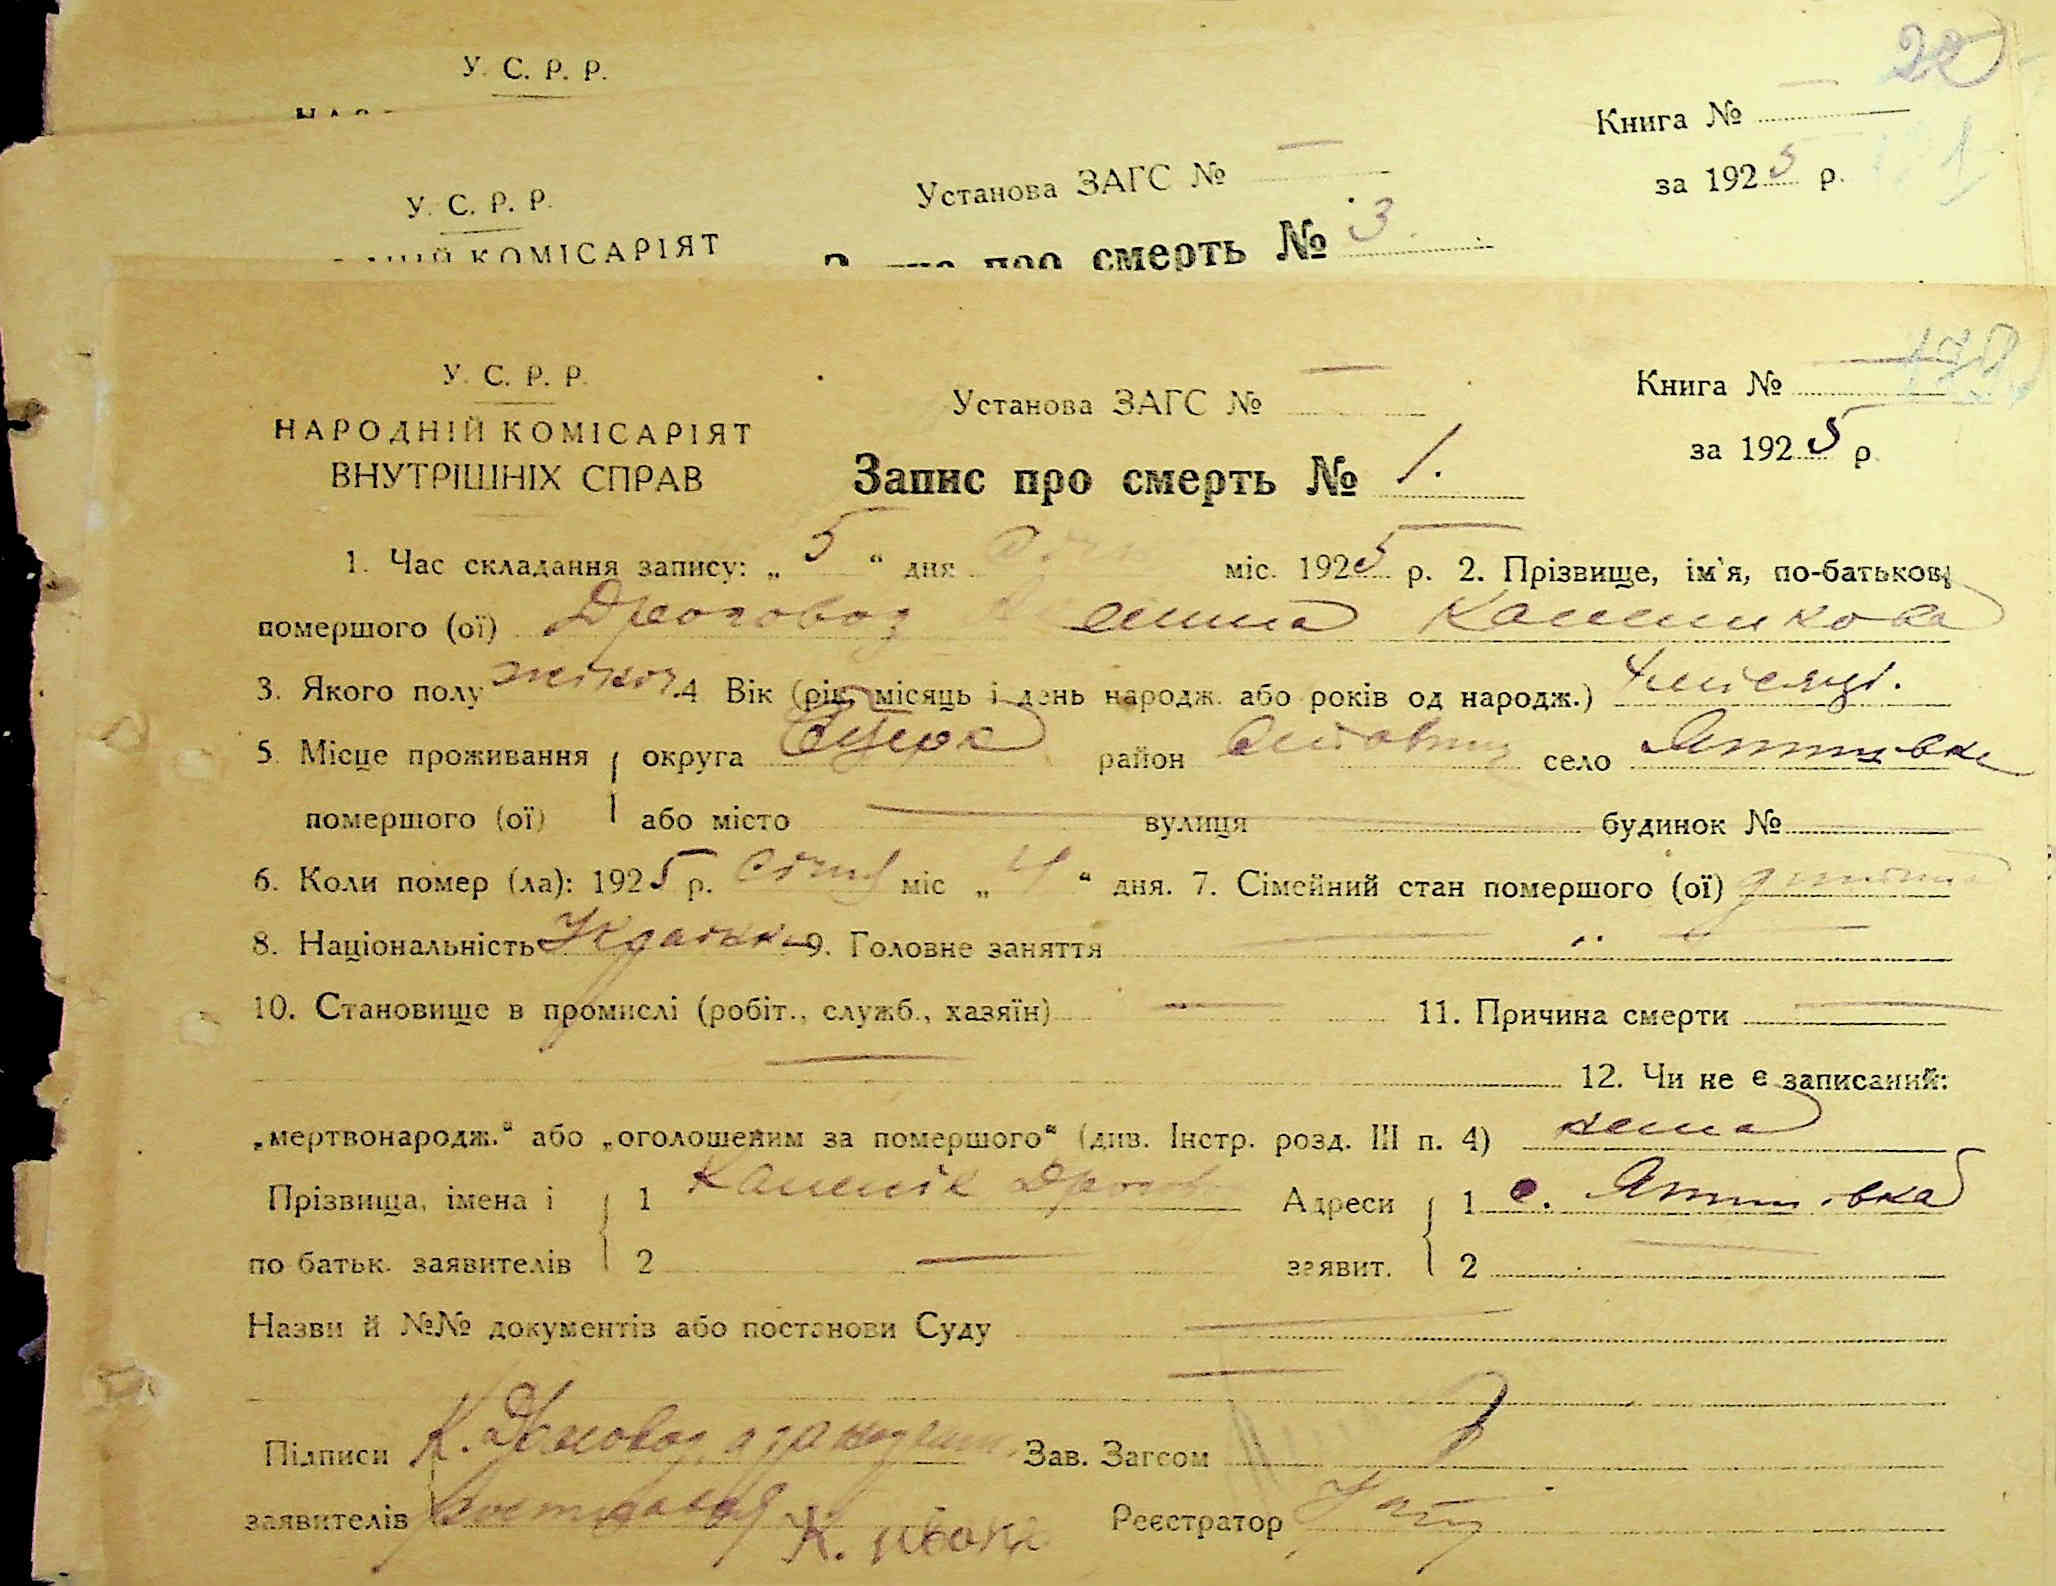 У. С. Р. Р.
20
Книга №
за 1925 р.
У. С. Р. Р.
Установа ЗАГС №
КОМІСАРІЯТ
про смерть № 3.
У. С. Р. Р.
НАРОДНІЙ КОМІСАРІЯТ
ВНУТРІШНІХ СПРАВ
Установа ЗАГС №
Книга №
за 1925 р.
Запис про смерть № 1.
1. Час складання запису: „ 5 “ дня Січня міс. 1925 р. 2. Прізвище, ім'я, по-батькові
помершого (ої)
3. Якого полу жіноч. 4 Вік (рік місяць і день народж. або років од народж.) 4 місяці.
5. Місце проживання округа район село
помершого (ої) або місто вулиця будинок №
6. Коли помер (ла): 1925 р. Січня міс „ 4 “ дня. 7. Сімейний стан помершого (ої)
8. Національність 9. Головне заняття
10. Становище в промислі (робіт., служб., хазяїн) 11. Причина смерти
12. Чи не є записаний:
„мертвонародж.“ або „оголошеним за помершого“ (див. Інстр. розд. III п. 4) нема
Прізвища, імена і 1 Каленік Адреси 1 с.
по батьк. заявителів 2 заявит. 2
Назви й №№ документів або постанови Суду
Підписи К. Зав. Загсом
заявителів К. Реєстратор